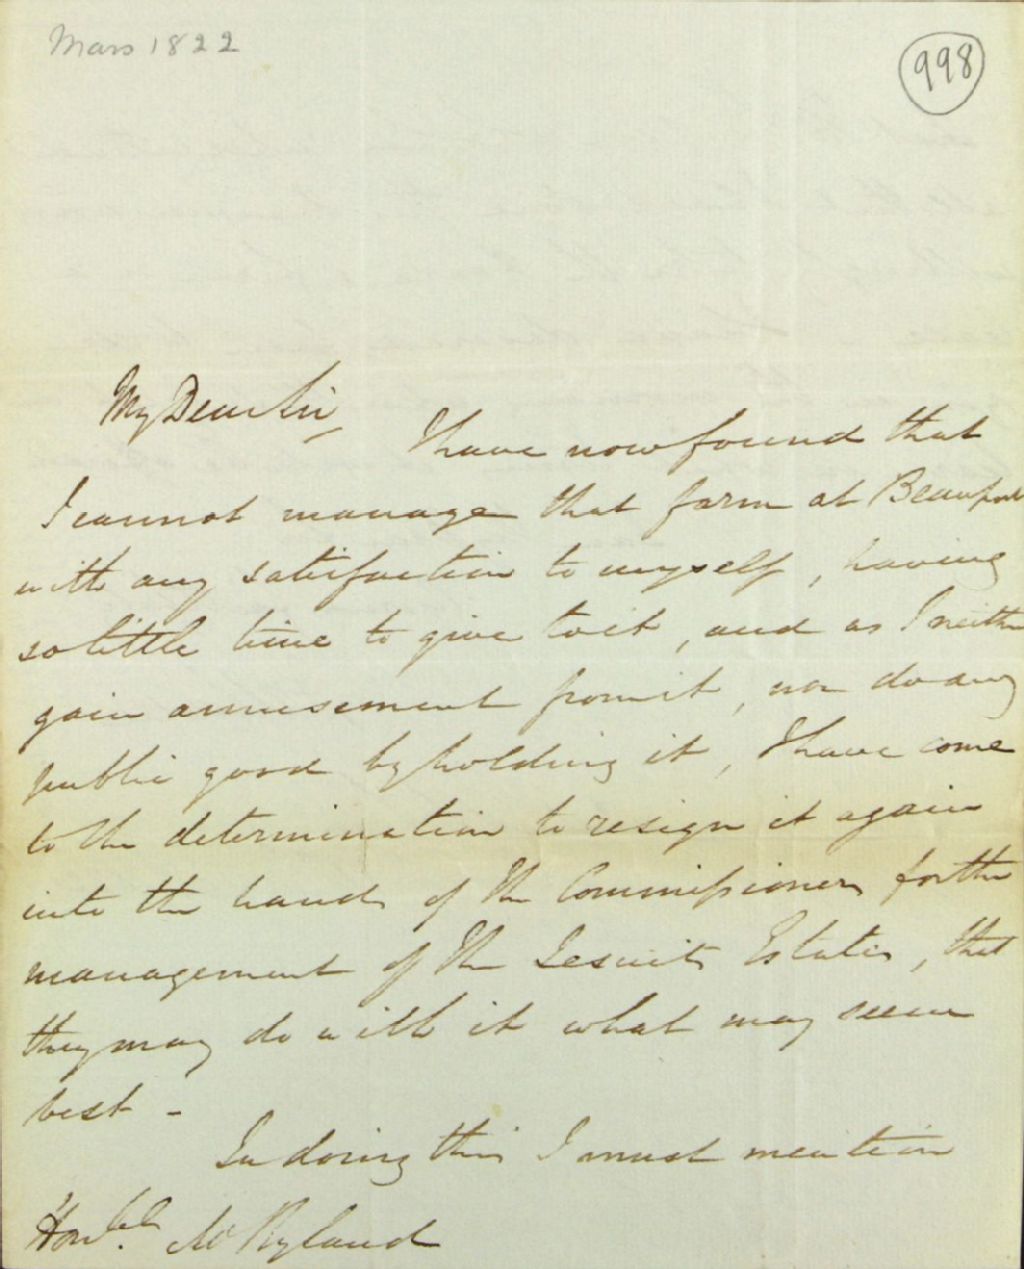 Mars 1822
998
My Dear Sir,
I have now found that
I cannot manage that farm at Beauport
with any satisfaction to myself, having
so little time to give to it, and as I neither
gain amusement from it, nor do any
public good by holding it, I have come
to the determination to resign it again
into the hands of the Commissioners for the
management of the Jesuits Estates, that
they may do with it what may seem
best -
In doing this I must mention
Honble. Mr Ryland